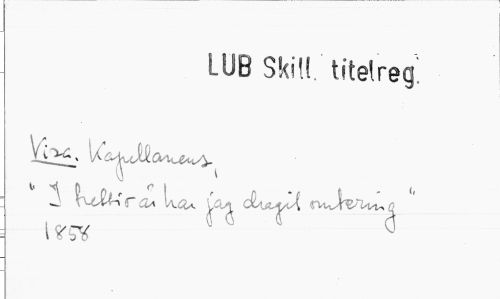 LUB Skill. titelreg.
Visa. Kapellanens,
"I trettio år har jag dragit omkring"
1858